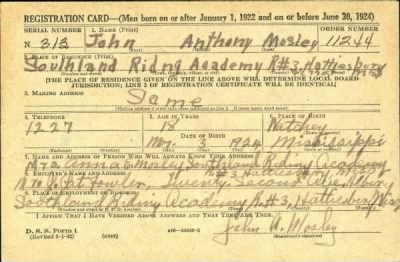 REGISTRATION CARD—(Men born on or after January 1, 1922 and on or before June 30, 1924)
SERIAL NUMBER 1. NAME (Print) ORDER NUMBER
N 313 John Anthony Mosley 11244
(First) (Middle) (Last)
2. PLACE OF RESIDENCE (Print)
Southland Riding Academy R#3, Hattiesburg Miss
[THE PLACE OF RESIDENCE GIVEN ON THE LINE ABOVE WILL DETERMINE LOCAL BOARD
JURISDICTION; LINE 2 OF REGISTRATION CERTIFICATE WILL BE IDENTICAL]
3. MAILING ADDRESS
Same
4. TELEPHONE 5. AGE IN YEARS 6. PLACE OF BIRTH
1227 18 Natchez
DATE OF BIRTH
1924 Mississippi
7. NAME AND ADDRESS OF PERSON WHO WILL ALWAYS KNOW YOUR ADDRESS
Mosley, Southland Riding Academy
8. EMPLOYER'S NAME AND ADDRESS
R#3 Hattiesburg Miss
Twenty-Second
9. PLACE OF EMPLOYMENT OR BUSINESS
Southland Riding Academy R.#3, Hattiesburg Miss
I AFFIRM THAT I HAVE VERIFIED ABOVE ANSWERS AND THAT THEY ARE TRUE.
D. S. S. Form 1
(Revised 6-1-42) (over)
John A. Mosley